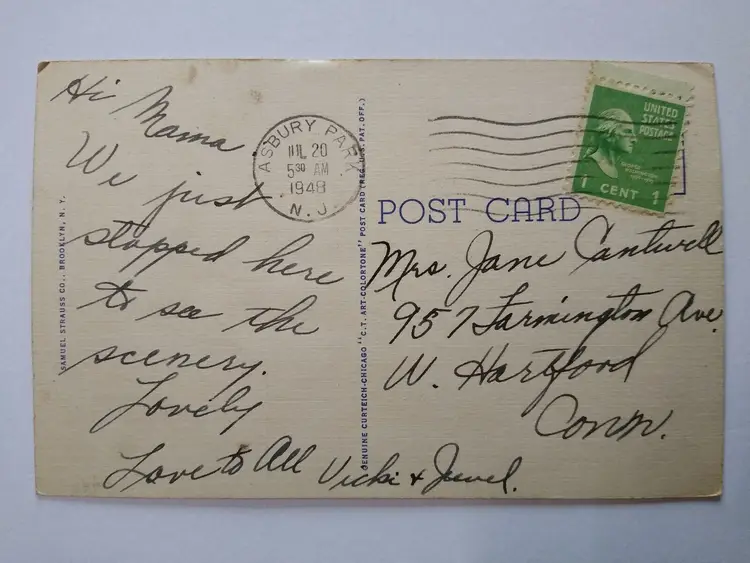 Hi Mama
We just
stopped here
to see the
scenery.
Lovely
Love to All Vicki + Jewel.
SAMUEL STRAUSS CO., BROOKLYN, N. Y.
ASBURY PARK
JUL 20
5 30 AM
1948
N. J.
GENUINE CURTEICH-CHICAGO "C.T. ART-COLORTONE" POST CARD (REG. U.S. PAT. OFF.)
UNITED
STATES
POSTAGE
1 CENT 1
POST CARD
Mrs. Jane Cantwell
957 Farmington Ave
W. Hartford
Conn.